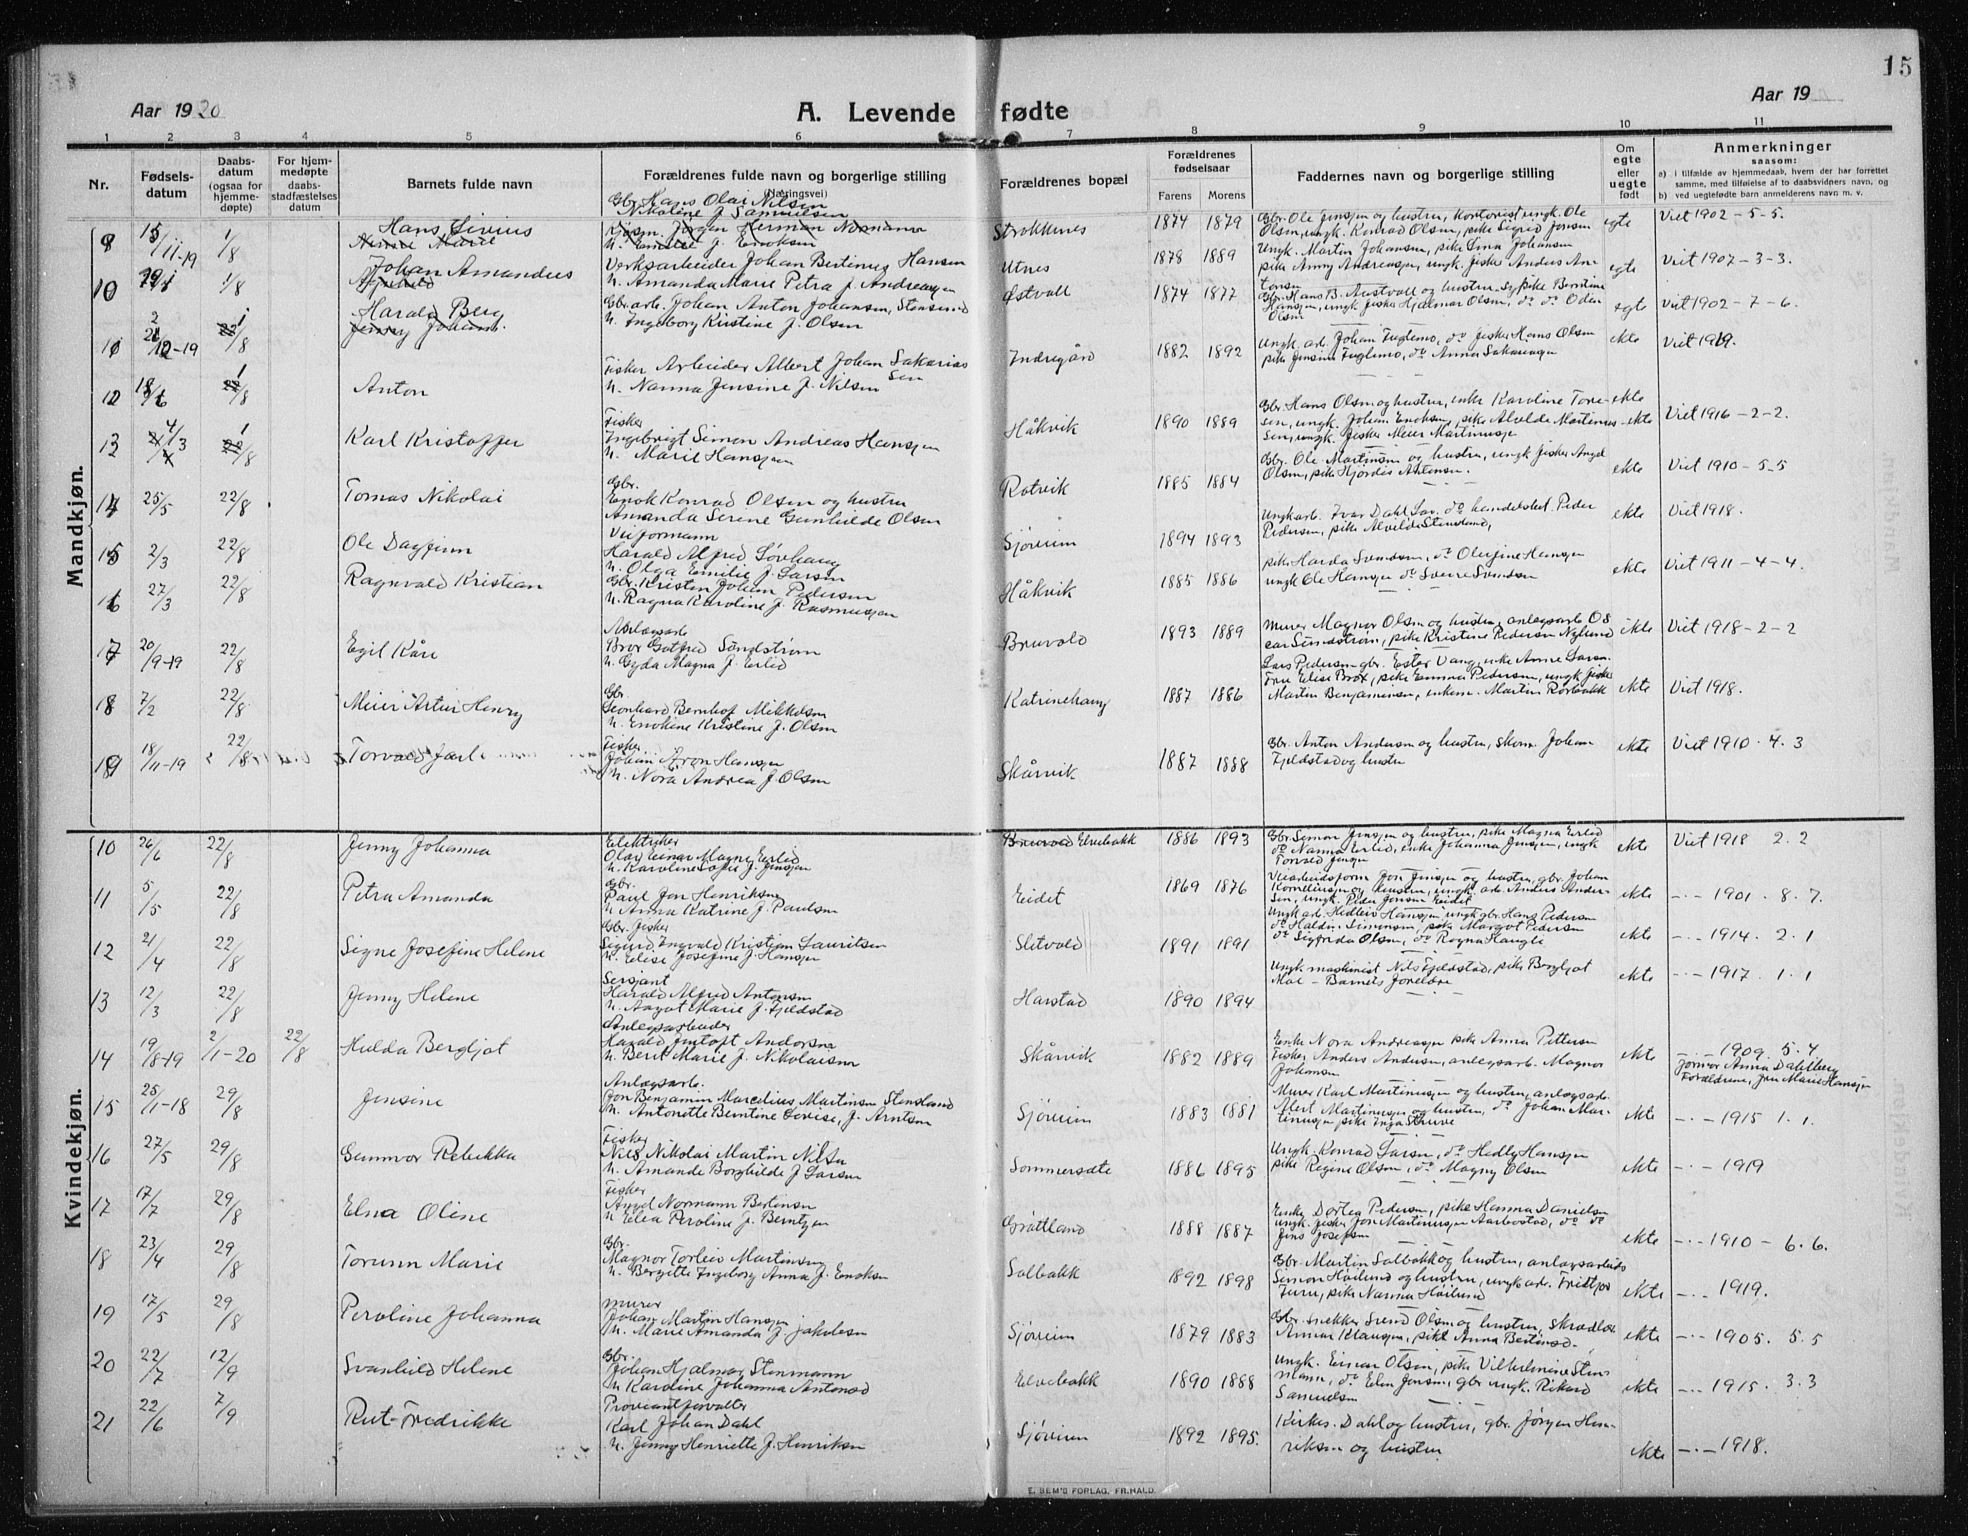 15
Aar 1920
A. Levende fødte
Aar 19
1 2 3 4 5 6 7 8 9 10 11
Nr.
Fødsels-
datum
Daabs-
datum
(ogsaa for
hjemme-
døpte)
For hjem-
medøpte
daabs-
stadfæstelses
datum
Barnets fulde navn
Forældrenes fulde navn og borgerlige stilling
(Næringsvei)
Forældrenes bopæl
Forældrenes
fødselsaar
Farens Morens
Faddernes navn og borgerlige stilling
Om
egte
eller
uegte
født
Anmerkninger
saasom:
a) i tilfælde av hjemmedaab, hvem der har forrettet
samme, med tilføielse af to daabsvidners navn, og
b) ved uegtefødte barn anmelderens navn m. v.
Mandkjøn.
9 15/11-19 1/8 Hans Livius
Gbr. Hans Olai Nilsen
Nikoline J. Samuelsen
Strokkenes 1874 1879
Gbr. Ole Jensen og hustru, kontorist ungk. Ole
Olsen, ungk. Konrad Olsen, pike Sigrid Jensen
egte Viet 1902-5-5.
10 1/8 Johan Amandus
Verksarbeider Johan Bertinus Hansen
u. Amanda Marie Petra J. Andreassen
Utnes 1878 1889
Ungk. Martin Johansen, pike Lina Johansen
pike Anny Andreassen, ungk. fisker Anders An-
tonsen
egte Viet 1907-3-3.
Harald Berg
Gbr. arb. Johan Anton Johansen, Stensund
u. Ingeborg Kristine J. Olsen
Østvoll 1874 1877
Gbr. Hans B. Austvoll og hustru,
Hansen, ungk. fisker Hjalmar Olsen, do do Odin
Olsen
egte Viet 1902-7-6.
11
Fisker Arbeider Albert Johan Sakarias
sen
u. Nanna Jensine J. Nilsen
Indregård 1882 1892
Ungk. arb. Johan Fuglemo, do fisker Hans Olsen
pike Jensine Fuglemo, do Anna Sakariassen
ekte Viet 1919.
12 Anton
Fisker
Ingebrigt Simon Andreas Hansen
u. Marie Hansen
Håkvik 1890 1889
Gbr. Hans Olsen og hustru, enke Karoline Tore-
sen, ungk. Johan Enoksen, pike Alvilde Martinus-
sen, ungk. fisker Meier Martinussen
ekte
ekte Viet 1916-2-2.
13 Karl Kristoffer
14 25/5 22/8 Tomas Nikolai
Gbr.
Enok Konrad Olsen og hustru
Amanda Serene Gunhilde Olsen
Rotvik 1885 1884
Gbr. Ole Martinsen og hustru, ungk. fisker Angel
Olsen, pike Hjørdis Antonsen.
ekte Viet 1910-5-5
15 2/3 22/8 Ole Dagfinn
Veiformann
Harald Alfred Løvhaug
u. Olga Emilie J. Larsen
Sjøveien 1894 1893
Ungk. arb. Ivar Dahl Lav. do handelsbst. Peder
Pedersen, pike Alvilde Stensland,
ekte Viet 1918.
16 27/3 22/8 Ragnvald Kristian
Gbr. Kristen Johan Pedersen
u. Ragna Karoline J. Rasmussen
Håkvik 1885 1886
pike Harda Svendsen, do Olufine Hansen
ungk. Ole Hansen do Sverre Svendsen
ekte Viet 1911-4-4.
17 20/9-19 22/8 Egil Kåre
Anlægsarb.
Bror Gotfred Sundstrøm
u. Gyda Magna J. Erlid
Bruvold 1893 1889
Murer Magnor Olsen og hustru, anlægsarb. Os
car Sundstrøm, pike Kristine Pedersen Nylund
ekte Viet 1918-2-2
18 7/2 22/8 Meier Artur Henry
Gbr.
Leonhard Bernhof Mikkelsen
u. Enokine Kristine J. Olsen
Katrinehaug 1887 1886
Lars Pedersen gbr. Ester Vang, enke Anne Larsen
Fru Elise Brox, pike Emma Pedersen, ungk. fisker
Martin Benjaminsen, enkem. Martin Rorbakk
ekte Viet 1918.
19 18/11-19 22/8 Torvald Jarl
Fisker
Johan Aron Hansen
u. Nora Andrea J. Olsen
Skårvik 1887 1888
Gbr. Anton Andersen og hustru, skom. Johan
Fjeldstad og hustru
ekte Viet 1910. 4. 3
Kvindekjøn.
10 26/6 22/8 Jenny Johanna
Elektriker
Olav Einar Magne Erlid
u. Karoline Sofie J. Jensen
Bruvold Elvebakk 1886 1893
Gbr. Simon Jensen og hustru, pike Magna Erlid
do Nanna Erlid, enke Johanna Jensen, ungk.
Torvald Jensen
ekte Viet 1918 2. 2
11 5/5 22/8 Petra Amanda
Gbr.
Paul Jon Henriksen
u. Anna Katrine J. Paulsen
Eidet 1869 1876
Veiarbeidsform. Jon Jensen og hustru, gbr. Johan
Korneliussen og hustru, ungk. arb. Anders Ander-
sen, ungk. Peder Jensen Eidet
ekte -.- 1901. 8. 7.
12 21/4 22/8 Signe Josefine Helene
Gbr. fisker
Sigurd Ingvald Kristian Lauritsen
u. Elise Josefine J. Hansen
Sletvold 1891 1891
Ungk. arb. Hedleiv Hansen, ungk. gbr. Hans Pedersen
do Haldin Simonsen, pike Margot Pedersen
do Sigfrida Olsen, do Ragna Haugli
ekte -.- 1914. 2. 1
13 12/3 22/8 Jenny Helene
Sersjant
Harald Alfred Antonsen
u. Aagot Marie J. Fjeldstad
Harstad 1890 1894
Ungk. maskinist Nils Fjeldstad, pike Bergljot
Moe - Barnets forældre
ekte -.- 1917. 1. 1
14 19/8-19 2/1-20 22/8 Hulda Bergljot
Anlegsarbeider
Harald Justoft Andorsen
u. Berit Marie J. Nikolaisen
Skårvik 1882 1889
Enke Nora Andreassen pike Anna Pettersen
Fisker Anders Andersen, anlegsarb. Magnor
Johansen
ekte -.- 1909. 5. 4.
Jormor Anna Dahlberg
Forældrene, Jon Marie Hansen
15 25/1-18 29/8 Jensine
Anlægsarb.
Jon Benjamin Marcelius Martinsen Stensland
u. Antonette Berntine Lovise, J. Arntsen
Sjøveien 1883 1881
Murer Karl Martinussen og hustru, anlægsarb.
Albert Martinussen og hustru, do Johan Mar-
tinussen pike Inga Struve
ekte -.- 1915 1. 1.
16 27/5 29/8 Gunnvor Rebekka
Fisker
Nils Nikolai Martin Nilsen
u. Amanda Borghilde J. Larsen
Sommersæte 1886 1895
Ungk. Konrad Larsen, do Hedly Hansen
pike Regine Olsen, do Magny Olsen
ekte -.- 1919
17 17/7 29/8 Elna Oline
Fisker
Angel Normann Berntsen
u. Elea Peroline J. Berntzen
Grøttland 1888 1887
Enke Dortea Pedersen, pike Hanna Danielsen
ungk. fisker Jon Martinussen Aarbostad, do do
Jens Josefsen
ekte -.- 1910 - 6. 6.
18 23/4 29/8 Torunn Marie
Gbr.
Magnor Torleiv Martinsen
u. Bergitte Ingeborg Anna J. Enoksen
Solbakk 1892 1898
Gbr. Martin Solbakk og hustru, anlægsarbeids
Simon Høilund og hustru, ungk. arb. Fridtjof
Furu, pike Nanna Høilund
ekte -.- 1919.
19 17/5 29/8 Peroline Johanna
murer
Johan Martin Hansen
u. Marie Amanda J. Jakobsen
Sjøveien 1879 1883
Gbr. snekker Svend Olsen og hustru, skrædder
Annar Klausen, pike Anna Bertinsd.
ekte -.- 1905. 5. 5
20 22/7 12/9 Svanhild Helene
Gbr.
Johan Hjalmar Stenmann
u. Karoline Johanna Antonsd
Elvebakk 1890 1888
Ungk. Einar Olsen, pike Vilhelmine Sten
mann, do Elen Jensen, gbr. ungk. Rikard
Samuelsen
ekte -.- 1915. 3. 3
21 22/6 7/9 Rut-Fredrikke
Proviantforvalter
Karl Johan Dahl
u. Jenny Henriette J. Henriksen
Sjøveien 1892 1895.
Kirkes. Dahl og hustru, gbr. Jørgen Hen-
riksen og hustru
ekte -.- 1918.
E. SEM'S FORLAG, FR.HALD.